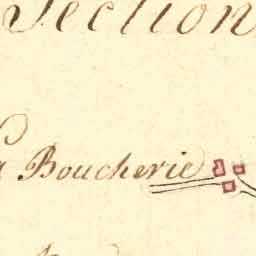 Section
Boucherie